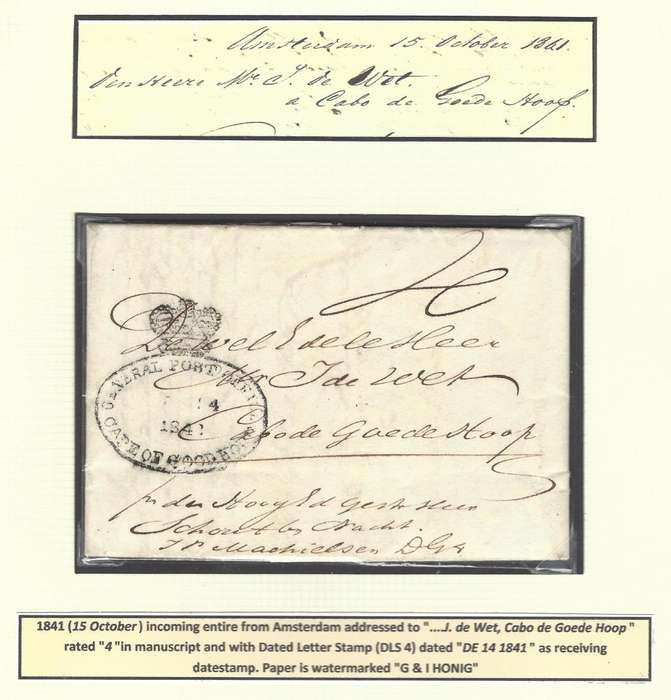 Amsterdam 15. October 1841.
den Heere Mr. J. de Wet.
a Cabo de Goede Hoop.
4
De Wel Edele Heer
Mr J de Wet
Cabo de Goede Hoop
GENERAL POST
14
1841
CAPE OF GOOD HOPE
p. den Hoog Ed Gestr Heer
Schout by Nacht.
Machielsen
1841 (15 October) incoming entire from Amsterdam addressed to "....J. de Wet, Cabo de Goede Hoop"
rated "4"in manuscript and with Dated Letter Stamp (DLS 4) dated "DE 14 1841" as receiving
datestamp. Paper is watermarked "G & I HONIG"